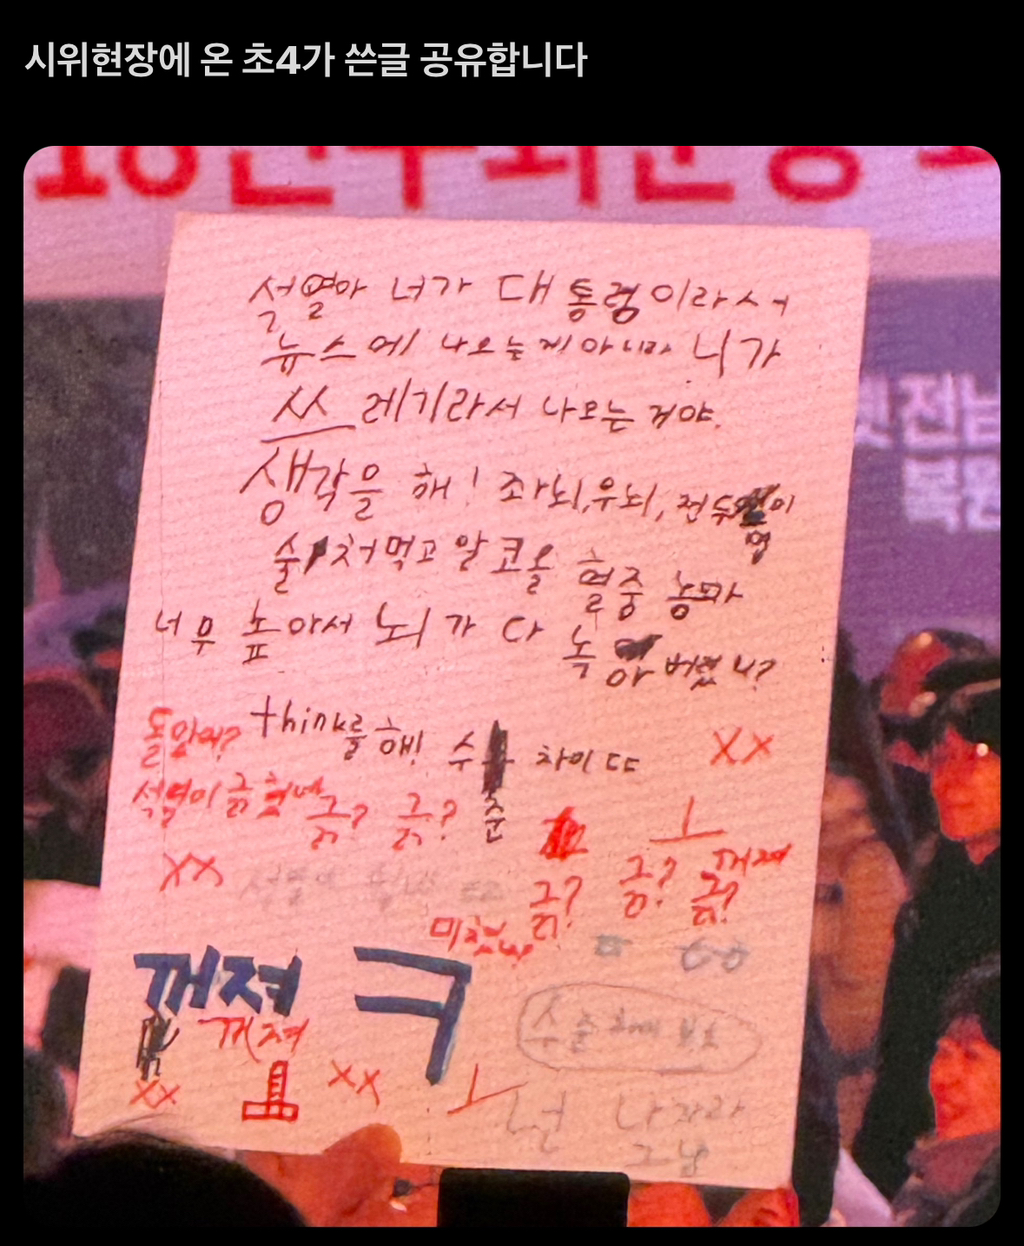 시위현장에 온 초4가 쓴글 공유합니다
석열아 너가 대통령이라서
뉴스에 나오는게 아니라 니가
쓰레기라서 나오는 거야.
생각을 해! 좌뇌,우뇌, 전두엽이
술 쳐먹고 알코올 혈중 농도가
너무 높아서 뇌가 다 녹아버렸니?
돌았어? think를 해! 수준 차이 ㄷㄷ XX
석열이 긁혔네 긁? 긁? ㅗ
XX 긁? 긁? 긁? 꺼져
미쳤나
꺼져 ㅋ ㅁ ㅎㅎ
꺼져 수준 차이 보소
XX ㅗ XX ㅗ 넌 나가라
그냥
전남